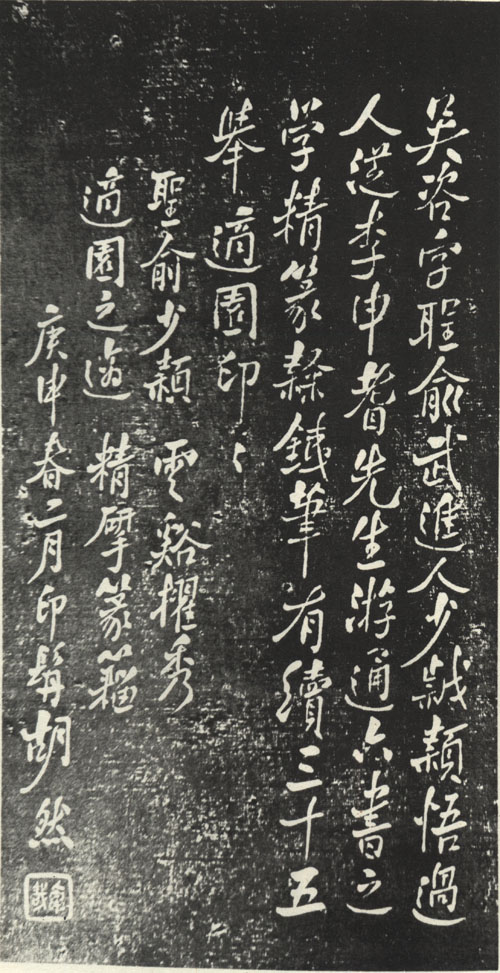 吳咨字聖俞武進人少誠穎悟過
人從李申耆先生游通六書之
学精篆隸鐵筆有續三十五
舉適園印〻
聖俞少穎 雲谿擢秀
適園之適 精揅篆籀
庚申春二月印髯胡然